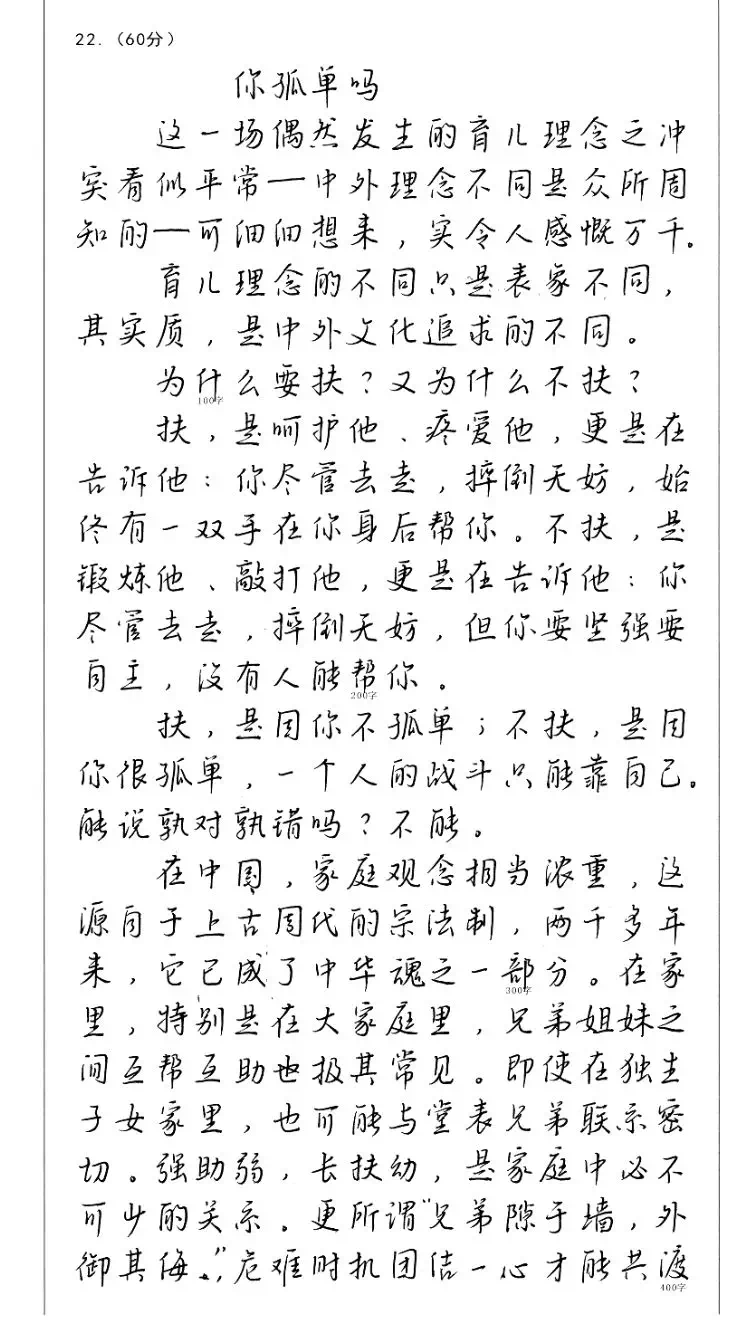 22.（60分）
你孤单吗
这一场偶然发生的育儿理念之冲
突看似平常一中外理念不同是众所周
知的一可细细想来，实令人感慨万千。
育儿理念的不同只是表象不同，
其实质，是中外文化追求的不同。
为什么要扶？又为什么不扶？
100字
扶，是呵护他、疼爱他，更是在
告诉他：你尽管去走，摔倒无妨，始
终有一双手在你身后帮你。不扶，是
锻炼他、敲打他，更是在告诉他：你
尽管去走，摔倒无妨，但你要坚强要
自主，没有人能帮你。
200字
扶，是因你不孤单；不扶，是因
你很孤单，一个人的战斗只能靠自己。
能说孰对孰错吗？不能。
在中国，家庭观念相当浓重，这
源自于上古周代的宗法制，两千多年
来，它已成了中华魂之一部分。在家
300字
里，特别是在大家庭里，兄弟姐妹之
间互帮互助也极其常见。即使在独生
子女家里，也可能与堂表兄弟联系密
切。强助弱，长扶幼，是家庭中必不
可少的关系。更所谓“兄弟隙于墙，外
御其侮。”，危难时机团结一心才能共渡
400字